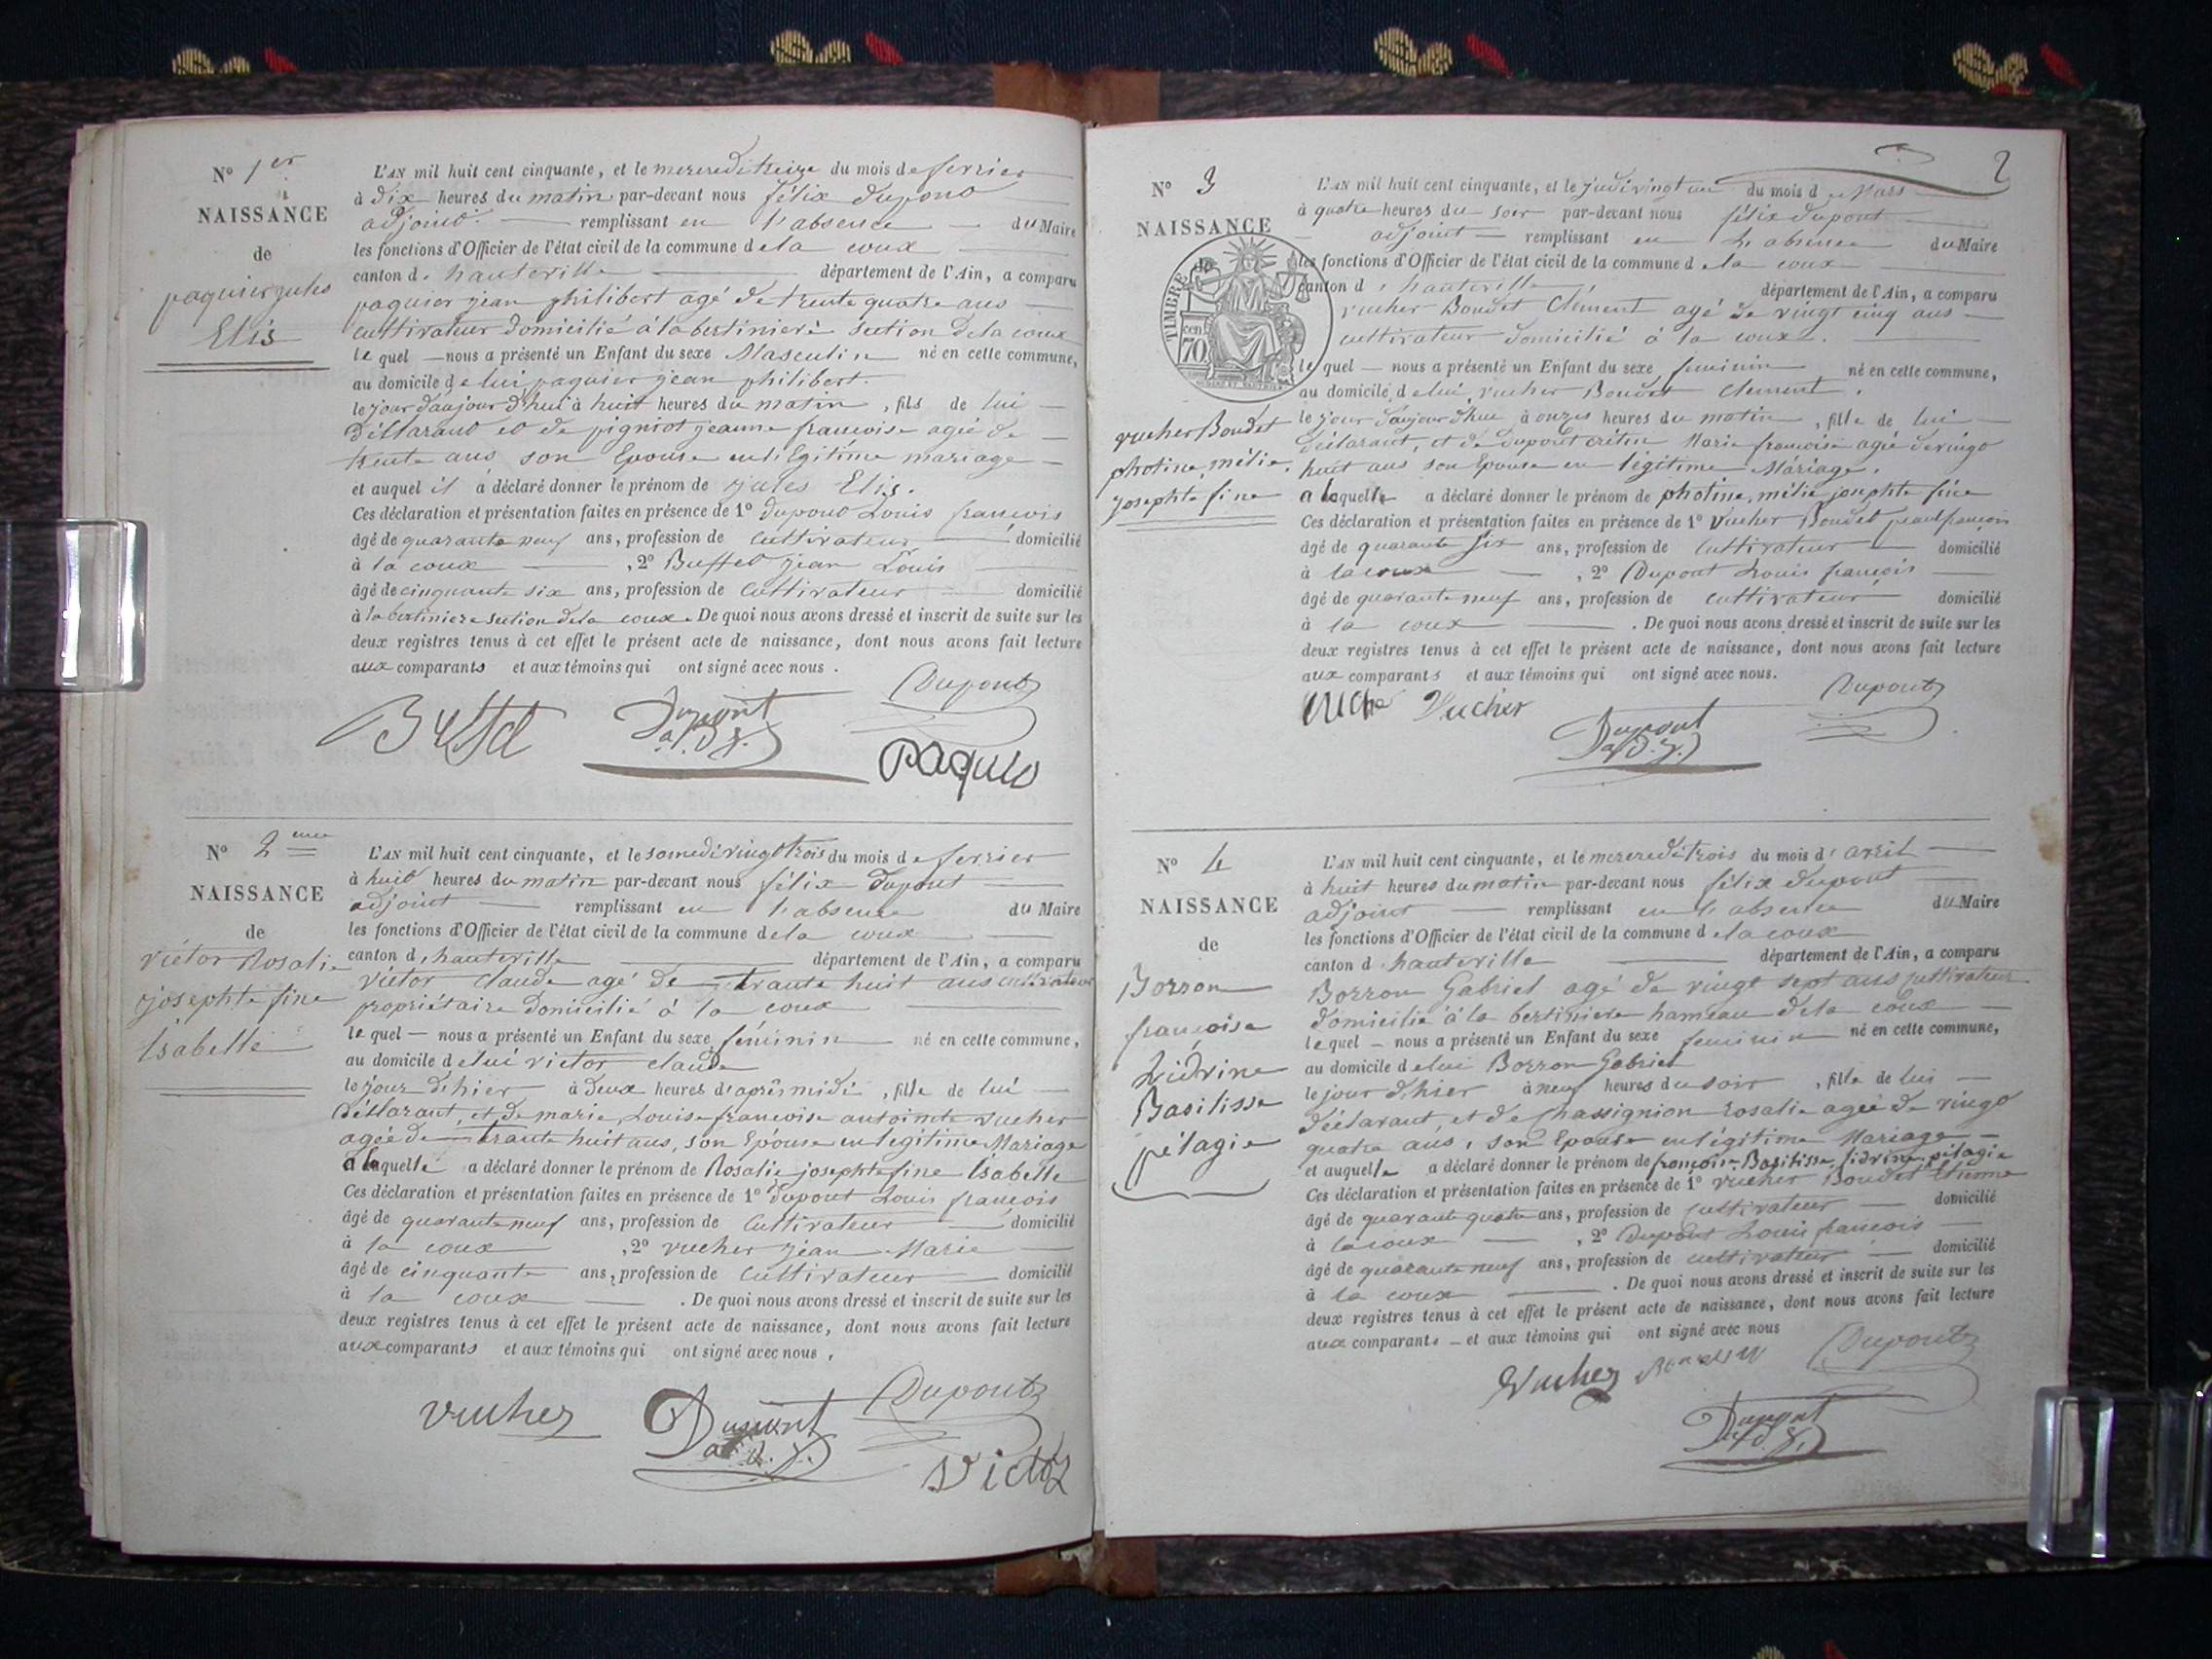 N° 1er
NAISSANCE
de
paquier jules
Elis
L'AN mil huit cent cinquante, et le mercredi treize du mois de ferrier
à dix heures du matin par-devant nous félix dupont
adjoint remplissant en l'absence du Maire
les fonctions d'Officier de l'état civil de la commune de la coux
canton d. hauteville département de l'Ain, a comparu
paquier jean philibert agé de trente quatre ans
cultivateur domicilié à la bertiniere section de la coux
le quel — nous a présenté un Enfant du sexe Masculin né en cette commune,
au domicile de lui paquier jean philibert.
le jour d'aujourd'hui à huit heures du matin, fils de lui
déllarant et de pigniot jeanne francoise agée de
trente ans son Epouse en légitime mariage
et auquel il a déclaré donner le prénom de jules Elis.
Ces déclaration et présentation faites en présence de 1° dupont Louis francois
âgé de quarante neuf ans, profession de Cultivateur domicilié
à la coux , 2° Buffet jean Louis
âgé de cinquante six ans, profession de Cultivateur domicilié
à la bertiniere section de la coux. De quoi nous avons dressé et inscrit de suite sur les
deux registres tenus à cet effet le présent acte de naissance, dont nous avons fait lecture
aux comparants et aux témoins qui ont signé avec nous.
Dupont
Dupont
adj.
paquio
N° 2eme
NAISSANCE
de
victor Rosalie
josephte fine
Isabelle
L'AN mil huit cent cinquante, et le samedi vingt trois du mois de ferrier
à huit heures du matin par-devant nous félix dupont
adjoint remplissant en l'absence du Maire
les fonctions d'Officier de l'état civil de la commune de la coux
canton d. hauteville département de l'Ain, a comparu
victor claude agé de trante huit ans cultivateur
propriétaire domicilié à la coux
le quel — nous a présenté un Enfant du sexe féminin né en cette commune,
au domicile de lui victor claude
le jour d'hier à deux heures d'aprîs midi, fille de lui
déllarant, et de marie Louise francoise antoinite vucher
agée de trante huit ans, son Epouse en legitime Mariage
a laquelle a déclaré donner le prénom de Rosalie josephte fine Isabelle
Ces déclaration et présentation faites en présence de 1° dupont Louis françois
âgé de quarante neuf ans, profession de Cultivateur domicilié
à la coux , 2° vucher jean Marie
âgé de cinquante ans, profession de Cultivateur domicilié
à la coux . De quoi nous avons dressé et inscrit de suite sur les
deux registres tenus à cet effet le présent acte de naissance, dont nous avons fait lecture
aux comparants et aux témoins qui ont signé avec nous,
vucher
Dupont
Dupont
adj.
victor
2
N° 3
NAISSANCE
TIMBRE
cen
70
vucher Boudet
photine mélie
josephte fine
L'AN mil huit cent cinquante, et le judi vingt un du mois d Mars
à quatre heures du soir par-devant nous félix dupont
adjoint — remplissant en l'absence du Maire
les fonctions d'Officier de l'état civil de la commune de la coux
canton d hauteville département de l'Ain, a comparu
vucher Boudet Clément agé de vingt cinq ans
cultivateur domicilié à la coux.
le quel — nous a présenté un Enfant du sexe feminin né en cette commune,
au domicile de lui, vucher Boudet Clement.
le jour d'aujourd'hui à onzes heures du matin, fille de lui
déclarant, et de dupont crétin Marie françoise agée de vingt
huit ans son Epouse en légitime Mariage.
a laquelle a déclaré donner le prénom de photine, mélie josephte fine
Ces déclaration et présentation faites en présence de 1° Vucher Boudet francois
âgé de quarante six ans, profession de Cultivateur domicilié
à la coux , 2° Dupont Louis françois
âgé de quarante neuf ans, profession de cultivateur domicilié
à la coux . De quoi nous avons dressé et inscrit de suite sur les
deux registres tenus à cet effet le présent acte de naissance, dont nous avons fait lecture
aux comparants et aux témoins qui ont signé avec nous.
Vucher
Dupont
Dupont
adj.
N° 4
NAISSANCE
de
Borron
françoise
Lidrine
Basilisse
pélagie
L'AN mil huit cent cinquante, et le mercredi trois du mois d'avril
à huit heures du matin par-devant nous félix dupont
adjoint remplissant en l'absence du Maire
les fonctions d'Officier de l'état civil de la commune de la coux
canton d hauteville département de l'Ain, a comparu
Borron Gabriel agé de vingt sept ans cultivateur
domicilié à la bertiniere hameau de la coux
lequel — nous a présenté un Enfant du sexe feminin né en cette commune,
au domicile de lui Borron Gabriel
le jour d'hier à neuf heures du soir, fille de lui
déclarant, et de Chassignion rosalie agée de vingt
quatre ans, son Epouse en légitime Mariage
et auquelle a déclaré donner le prénom de françoise Basilisse, lidrine pélagie
Ces déclaration et présentation faites en présence de 1° vucher Boudet Etienne
âgé de quarante quatre ans, profession de cultivateur domicilié
à la coux , 2° Dupont Louis françois
âgé de quarante neuf ans, profession de cultivateur domicilié
à la coux . De quoi nous avons dressé et inscrit de suite sur les
deux registres tenus à cet effet le présent acte de naissance, dont nous avons fait lecture
aux comparants — et aux témoins qui ont signé avec nous
Vucher
Dupont
Dupont
adj.